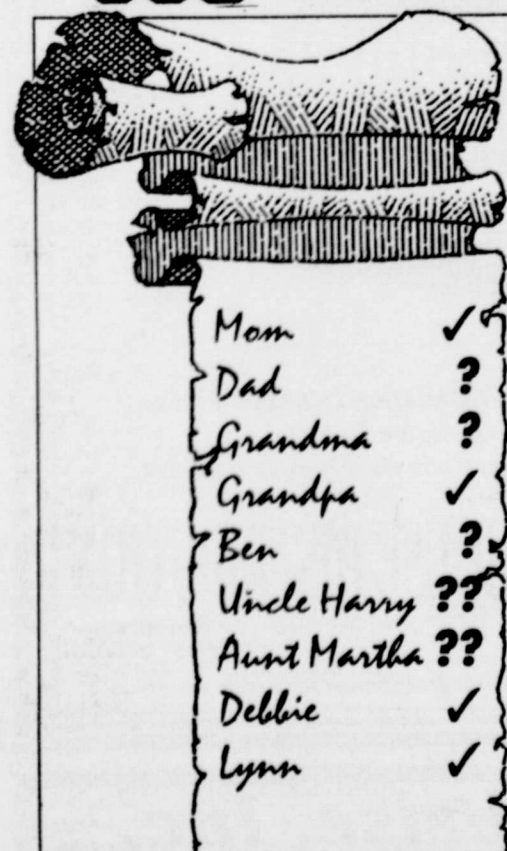 Mom ✓
Dad ?
Grandma ?
Grandpa ✓
Ben ?
Uncle Harry ??
Aunt Martha ??
Debbie ✓
Lynn ✓